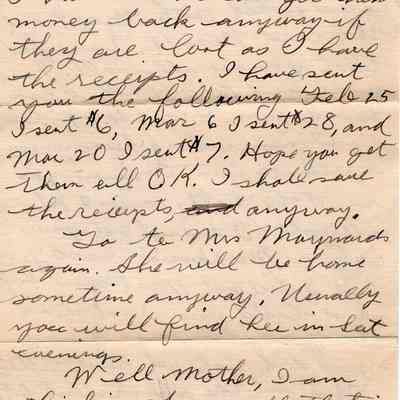 money back anyway if
they are lost as I have
the receipts. I have sent
you the following Feb 25
I sent $6, Mar 6 I sent $28, and
Mar 20 I sent $7. Hope you get
them all OK. I shale save
the receipts and anyway.
Go to Mrs Maynards
again. She will be home
sometime anyway. Usually
you will find her in Sat
evenings.
Well Mother, I am